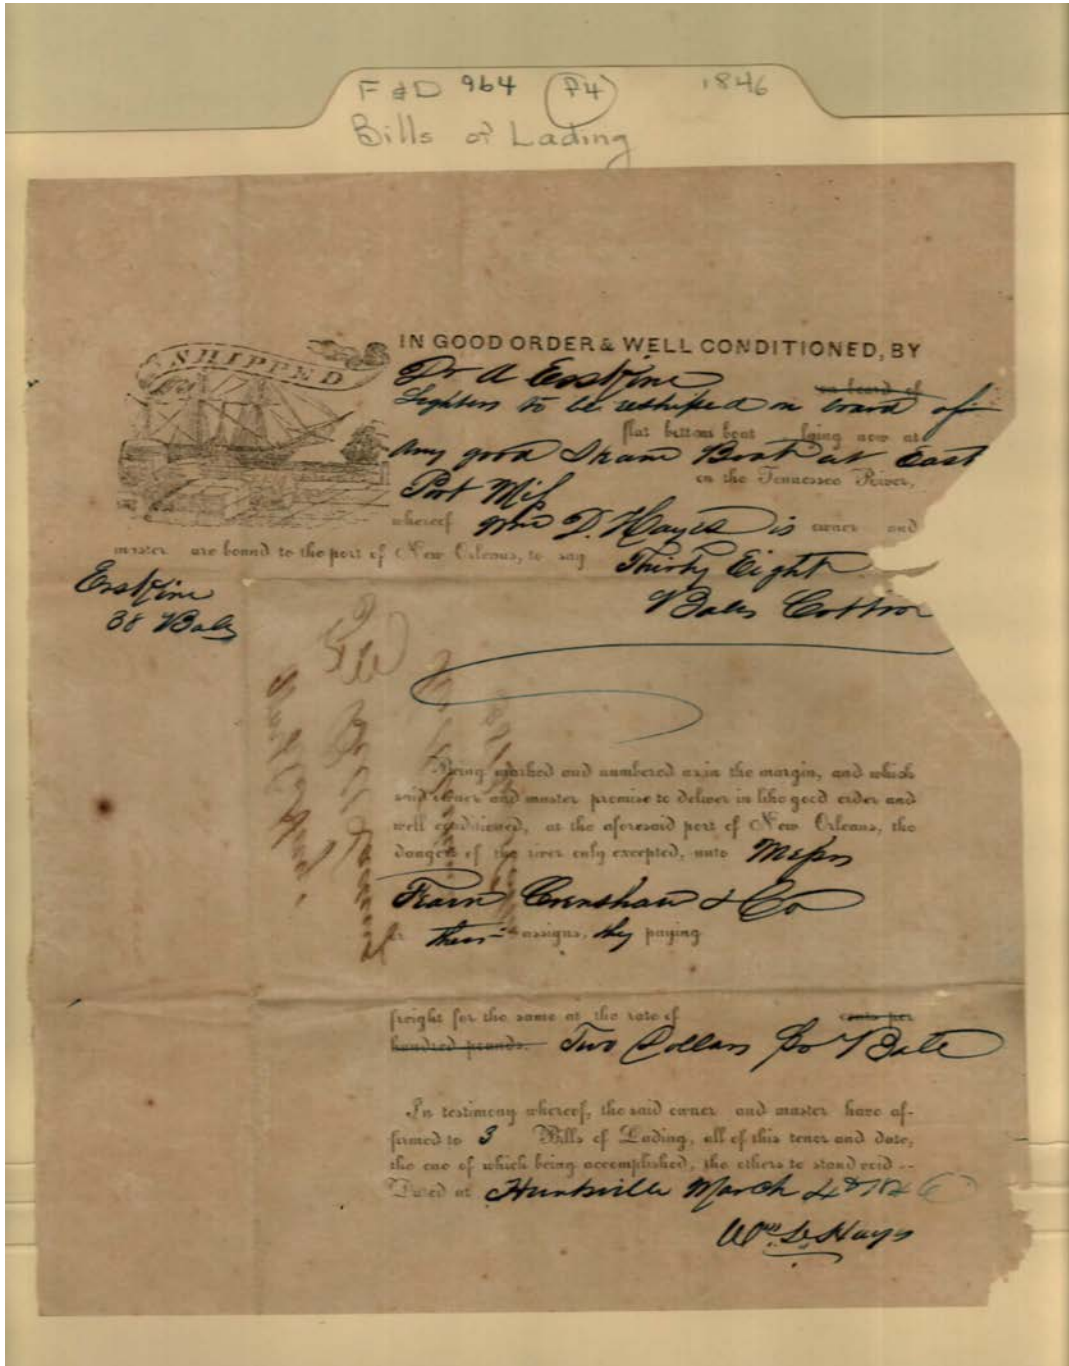 F & D 964 P4 1846
Bills of Lading
SHIPPED
IN GOOD ORDER & WELL CONDITIONED, BY
Dr A Erskine
on board of
Lighters to be reshiped on board of
flat bottom boat lying now at
Any good Steam Boat at East
on the Tennessee River,
Port Mis
whereof Wm D. Hayes is owner and
master are bound to the port of New Orleans, to say Thirty Eight
Erskine
38 Bales
Bales Cotton
Being marked and numbered as in the margin, and which
said owner and master promise to deliver in like good order and
well conditioned, at the aforesaid port of New Orleans, the
dangers of the river only excepted, unto Messrs
Fearn Crenshaw & Co
or their assigns, they paying
freight for the same at the rate of cents per
hundred pounds. Two Dollars Pr Bale
In testimony whereof, the said owner and master have af-
firmed to 3 Bills of Lading, all of this tenor and date,
the one of which being accomplished, the others to stand void --
Dated at Huntsville March 4th 1846
Wm D Hays